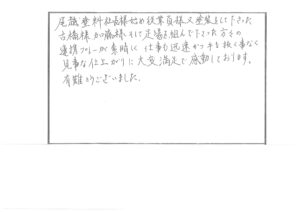 尾識塗料社長様始め従業員様又塗装をして下さった
古橋様加藤様そして足場を組んで下さった方々の
連携プレーが素晴に仕事も迅速かつ手を抜く事なく
見事な仕上がりに大変満足で感動しております。
有難うございました。